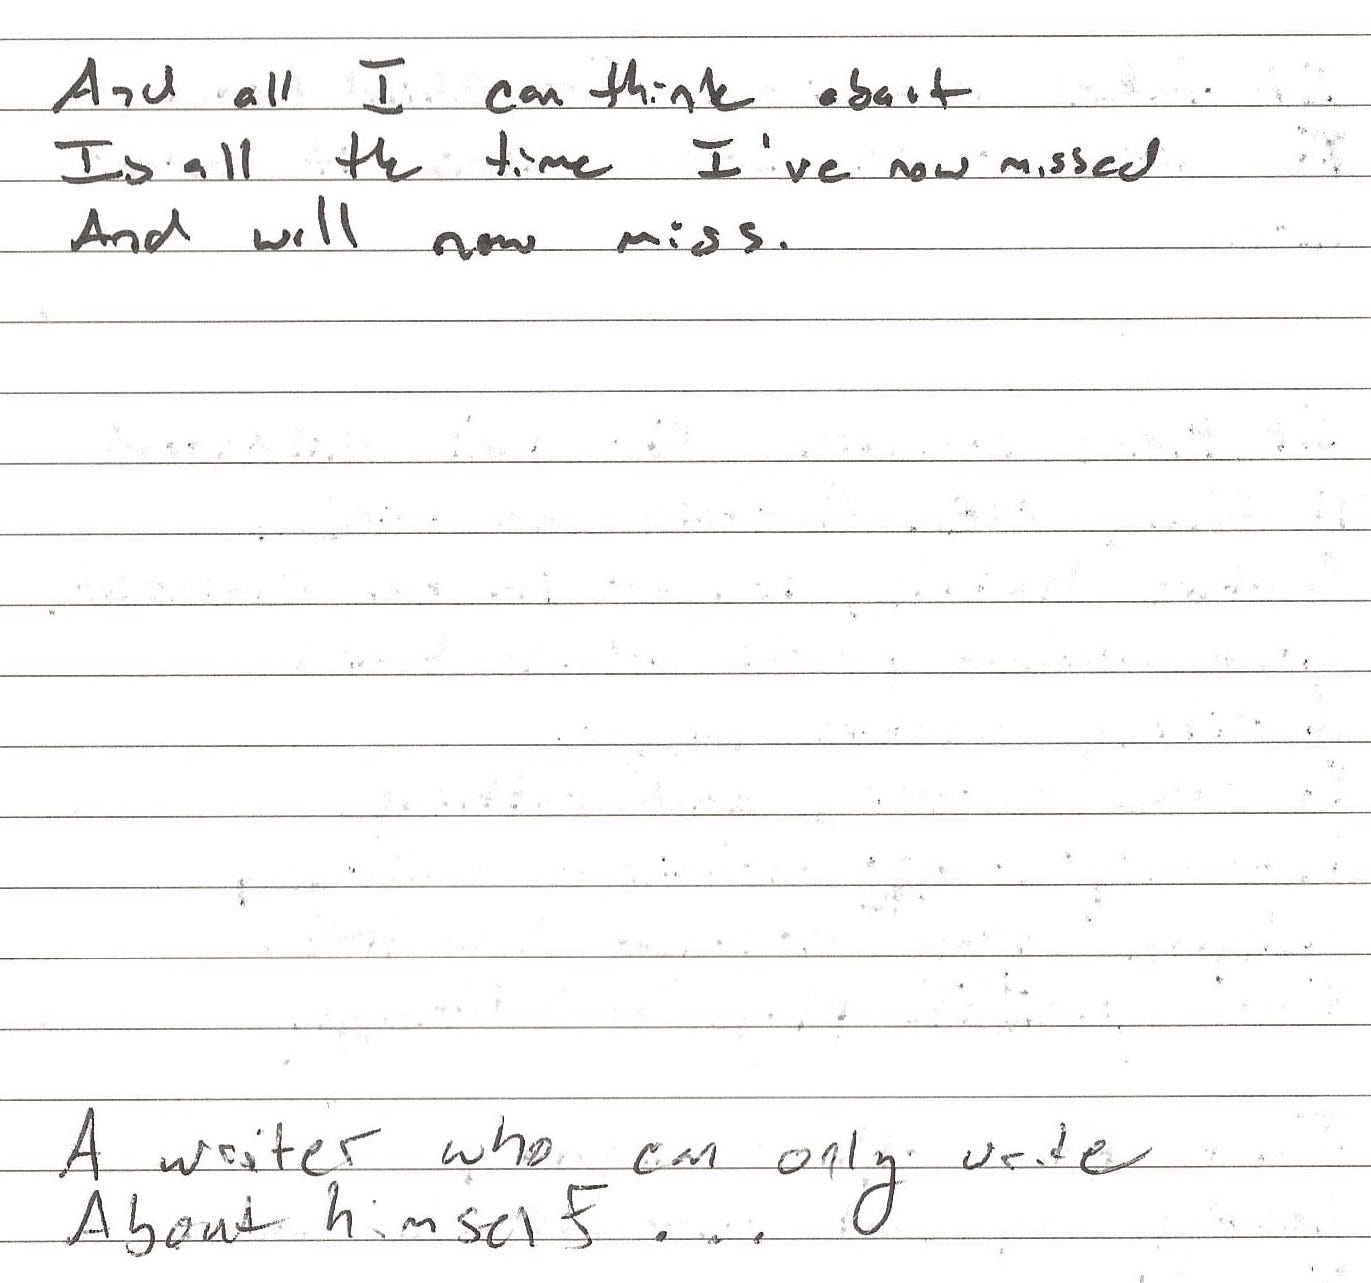 And all I can think about
Is all the time I've now missed
And will now miss.
A writer who can only write
About himself....